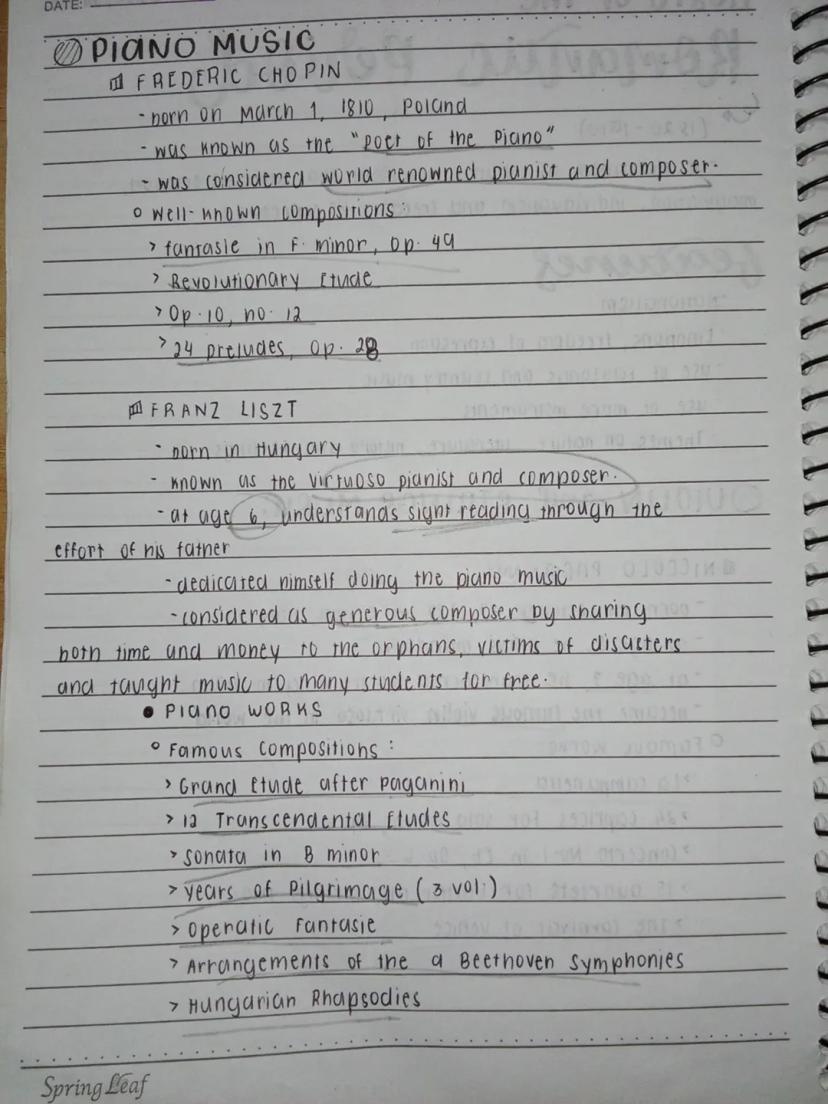 DATE:
PIANO MUSIC
FREDERIC CHOPIN
- born on March 1, 1810, Poland
- was known as the "Poet of the Piano"
- was considered world renowned pianist and composer.
o well-known compositions:
> fantasie in F minor, Op. 49
> Revolutionary Etude
> Op. 10, no. 12
> 24 preludes, Op. 28
FRANZ LISZT
- born in Hungary
- known as the virtuoso pianist and composer.
- at age 6, understands sight reading through the
effort of his father
- dedicated himself doing the piano music
- considered as generous composer by sharing
both time and money to the orphans, victims of disasters
and taught music to many students for free.
• PIANO WORKS
o Famous Compositions:
> Grand Etude after Paganini
> 12 Transcendental Etudes
> Sonata in B minor
> Years of Pilgrimage (3 vol.)
> Operatic Fantasie
> Arrangements of the 9 Beethoven Symphonies
> Hungarian Rhapsodies
Spring Leaf